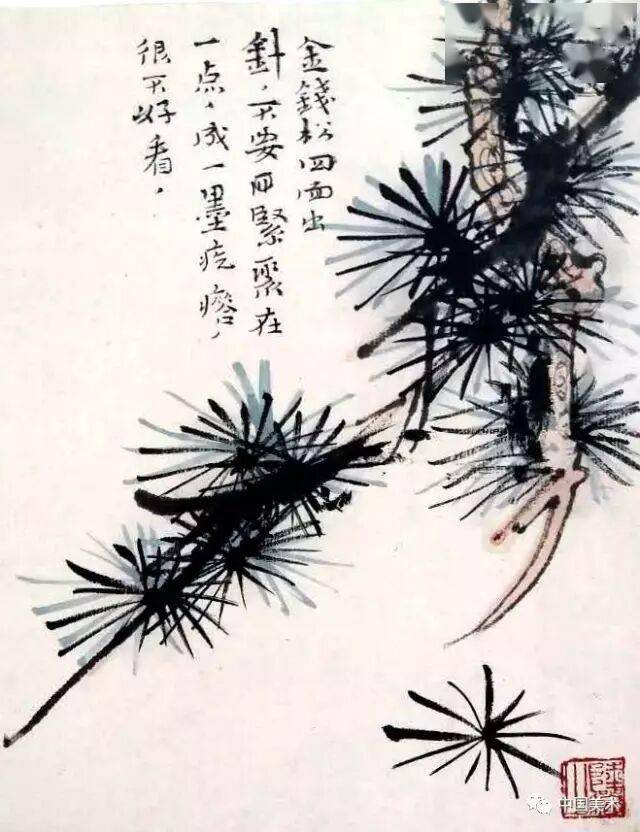 金錢松四面出
針,不要緊聚在
一点,成一墨疙瘩,
很不好看,
中国美术